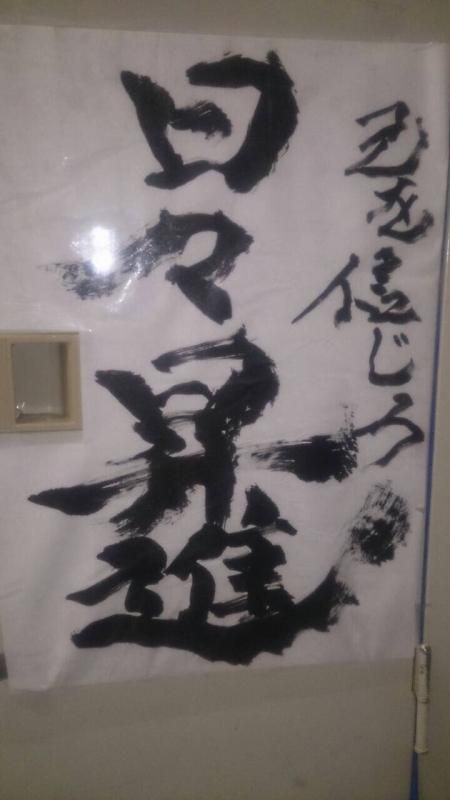 己を信じろ
日々昇進